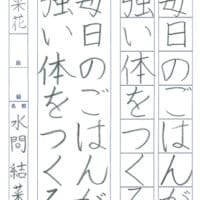 毎日のごはんが
強い体をつくる
毎日のごはんが
強い体をつくる
菜花
名前 水間 結菜